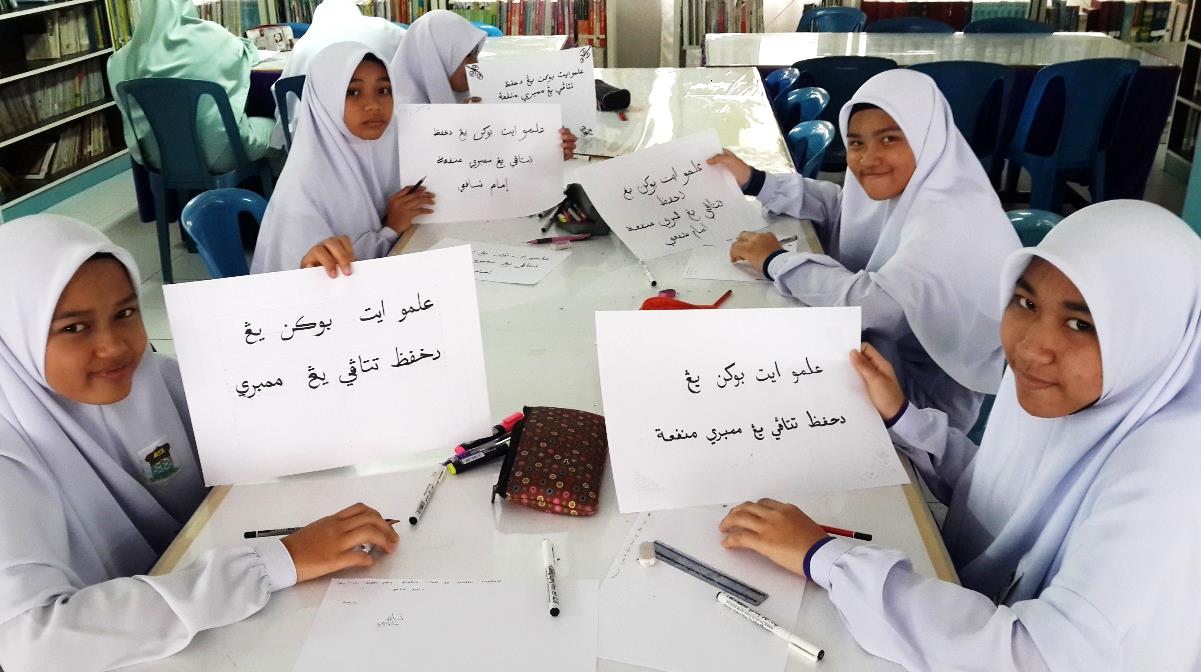 علمو ايت بوكن يڠ دحفظ
تتاڤي يڠ ممبري منفعة
علمو ايت بوكن يڠ دحفظ
تتاڤي يڠ ممبري منفعة
إمام شافعي
علمو ايت بوكن يڠ
دحفظ
تتاڤي يڠ ممبري منفعة
امام شافعي
علمو ايت بوكن يڠ
دخفظ تتاڤي يڠ ممبري
علمو ايت بوكن يڠ
دحفظ تتاڤي يڠ ممبري منفعة